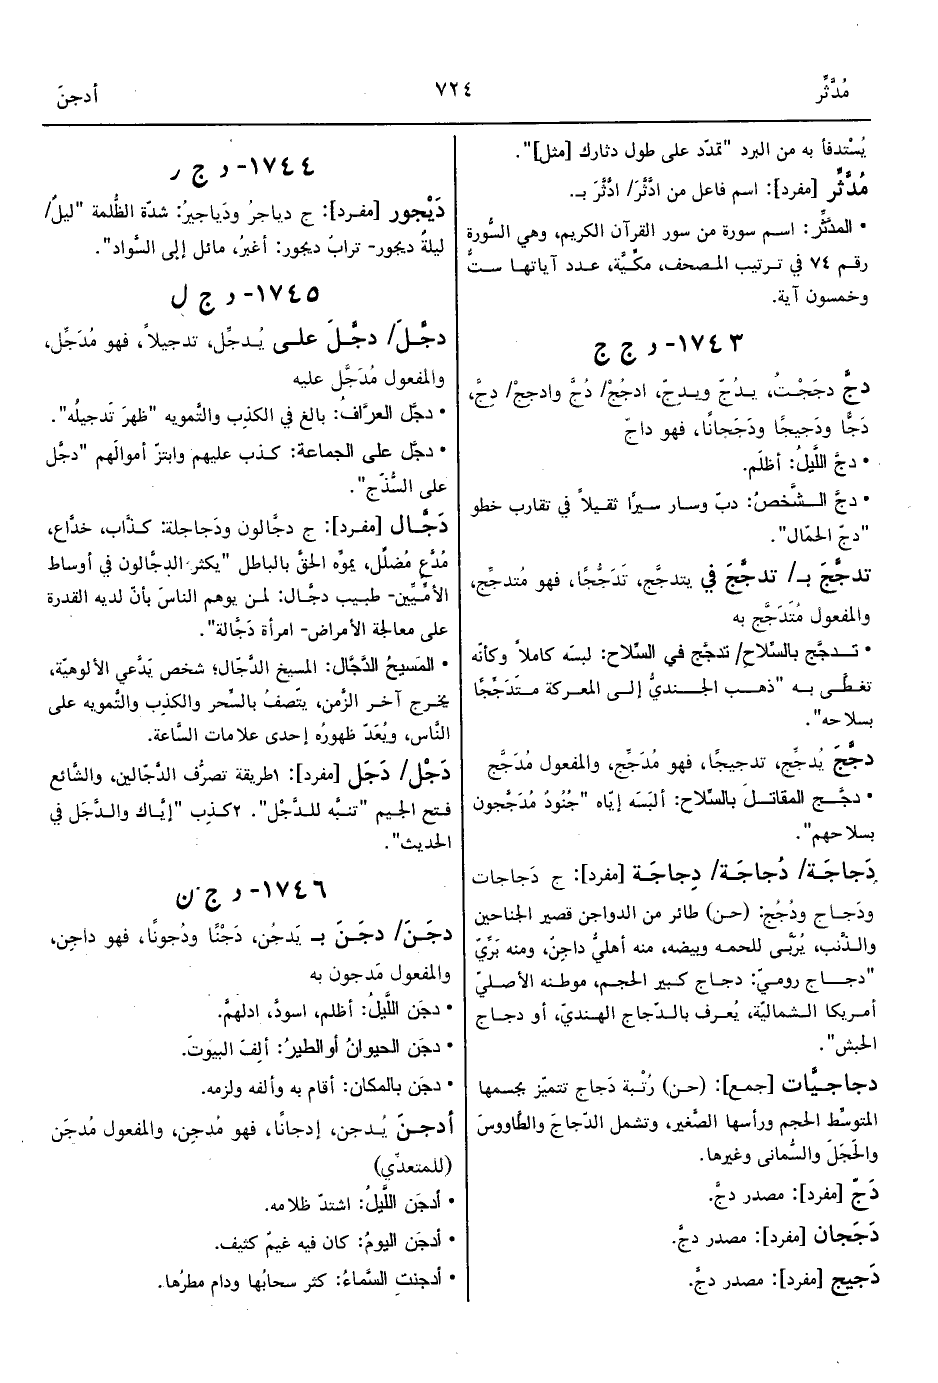 مُدَّثِّر
٧٢٤
أدجنَ
يُسْتدفأ به من البرد "تمدّد على طول دثارك [مثل]".
مُدَّثِّر [مفرد]: اسم فاعل من ادَّثَّرَ/ ادَّثَّرَ بـ.
• المدّثِّر: اسم سورة من سور القرآن الكريم، وهي السُّورة
رقم ٧٤ في ترتيب المصحف، مكِّيَّة، عدد آياتها ستٌّ
وخمسون آية.
١٧٤٣- د ج ج
دجَّ دجَجْتُ، يدُجّ ويدِجّ، ادجُجْ/ دُجَّ وادجِجْ/ دِجَّ،
دَجًّا ودَجيجًا ودَجَجانًا، فهو داجّ
• دجَّ اللَّيلُ: أظلَم.
• دجَّ الشَّخصُ: دبّ وسار سيرًا ثقيلاً في تقارب خطو
"دجّ الحَمّال".
تدجَّجَ بـ/ تدجَّجَ في يتدجَّج، تَدَجُّجًا، فهو مُتدجِّج،
والمفعول مُتَدَجَّج به
• تدجَّج بالسِّلاحِ/ تدجَّج في السِّلاح: لبسَه كاملاً وكأنّه
تغطَّى به "ذهب الجنديُّ إلى المعركة متدَجِّجًا
بسلاحه".
دجَّجَ يُدجِّج، تدجيجًا، فهو مُدَجِّج، والمفعول مُدَجَّج
• دجَّج المقاتلَ بالسِّلاح: ألبَسَه إيّاه "جُنُودٌ مُدَجَّجون
بسلاحهم".
دَجاجَة/ دُجاجَة/ دِجاجَة [مفرد]: ج دَجاجات
ودَجاج ودُجُج: (حن) طائر من الدواجن قصير الجناحين
والذَّنب، يُرَبَّى للحمه وبيضه، منه أهليٌّ داجِنٌ، ومنه بَرِّيّ
"دجاج روميّ: دجاج كبير الحجم، موطنه الأصليّ
أمريكا الشماليّة، يُعرف بالدّجاج الهنديّ، أو دجاج
الحبش".
دجاجيَّات [جمع]: (حن) رُتْبة دَجاج تتميّز بجسمها
المتوسِّط الحجم ورأسها الصَّغير، وتشمل الدَّجاجَ والطَّاووسَ
والحَجَلَ والسُّمانى وغيرها.
دَجّ [مفرد]: مصدر دجَّ.
دَجَجان [مفرد]: مصدر دجَّ.
دَجيج [مفرد]: مصدر دجَّ.
١٧٤٤- د ج ر
دَيْجور [مفرد]: ج دياجرُ ودَياجيرُ: شدّة الظُّلمة "ليلٌ/
ليلةٌ ديجور- ترابٌ ديجور: أغبرُ، مائل إلى السَّواد".
١٧٤٥- د ج ل
دجَّلَ/ دجَّلَ على يُدجِّل، تدجيلاً، فهو مُدَجِّل،
والمفعول مُدَجَّل عليه
• دجَّل العرَّافُ: بالغ في الكذِب والتَّمويه "ظهرَ تَدجيلُه".
• دجَّل على الجماعة: كذب عليهم وابتزّ أموالَهم "دجَّل
على السُّذَّج".
دَجَّال [مفرد]: ج دجَّالون ودَجاجلة: كذَّاب، خدَّاع،
مُدَّعٍ مُضلِّل، يموِّه الحقَّ بالباطل "يكثر الدجّالون في أوساط
الأمِّيِّين- طبيب دجَّال: لمن يوهم الناسَ بأنّ لديه القدرة
على معالجة الأمراض- امرأة دَجَّالة".
• المَسيحُ الدَّجَّال: المسيخ الدَّجّال؛ شخص يَدَّعي الألوهيّة،
يخرج آخر الزّمن، يتّصفُ بالسِّحر والكذِب والتَّمويه على
النَّاس، ويُعَدّ ظهورُه إحدى علامات السَّاعة.
دَجْل/ دَجَل [مفرد]: ١طريقة تصرُّف الدَّجّالين، والشَّائع
فتح الجيم "تنبَّه للدَّجْل". ٢كذِب "إيّاك والدَّجَل في
الحديث".
١٧٤٦- د ج ن
دجَنَ/ دجَنَ بـ يَدجُن، دَجْنًا ودُجونًا، فهو داجِن،
والمفعول مَدجون به
• دجَن اللَّيلُ: أظلم، اسودّ، ادلهمَّ.
• دجَن الحيوانُ أو الطيرُ: ألِفَ البيوت.
• دجَن بالمكان: أقام به وألفه ولزمه.
أدجنَ يُدجن، إدجانًا، فهو مُدجِن، والمفعول مُدجَن
(للمتعدِّي)
• أدجَن اللَّيلُ: اشتدّ ظلامه.
• أدجَن اليومُ: كان فيه غيمٌ كثيف.
• أدجنتِ السَّماءُ: كثر سحابُها ودام مطرُها.